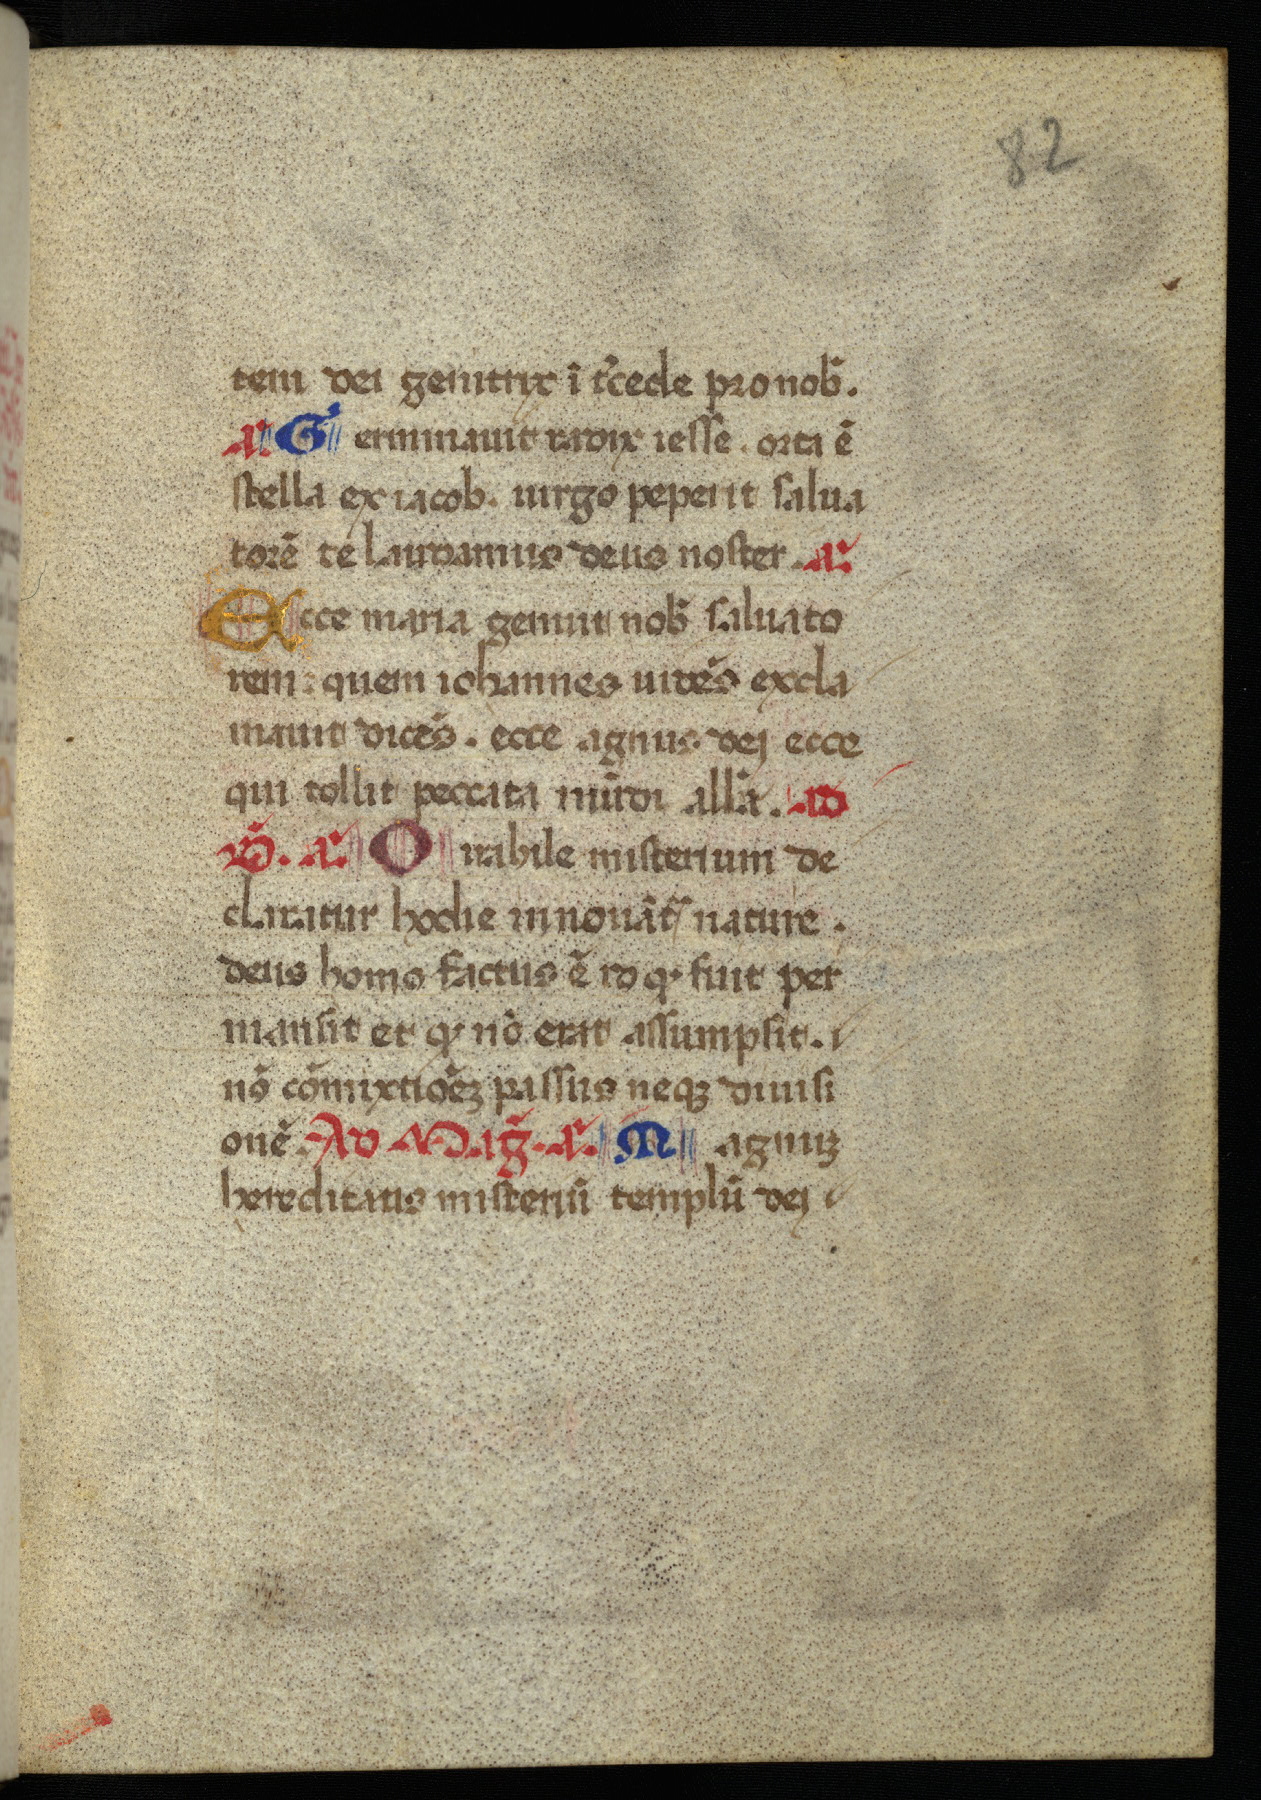 82
tem dei genitrix ĩ tc̃ede pro nob̃.
añ. Germinauit radix iesse. orta ẽ
stella ex iacob. uirgo peperit salua
torẽ te laudamus deus noster. añ.
Ecce maria genuit nob̃ saluato
rem: quem iohannes uidẽs excla
mauit dicẽs. ecce agnus dei ecce
qui tollit peccata mũdi all̃a. ad
b̃. añ. Mirabile misterium de
claratur hodie innouãt᷑ nature.
deus homo factus ẽ id qͥ fuit per
mansit et qͥ nõ erat assumpsit.
nõ cõmixtiõeꝫ passus neqꝫ diuisi
onẽ. Ad Mag̃. añ. Magnuꝫ
hereditatis misteriũ templũ dei